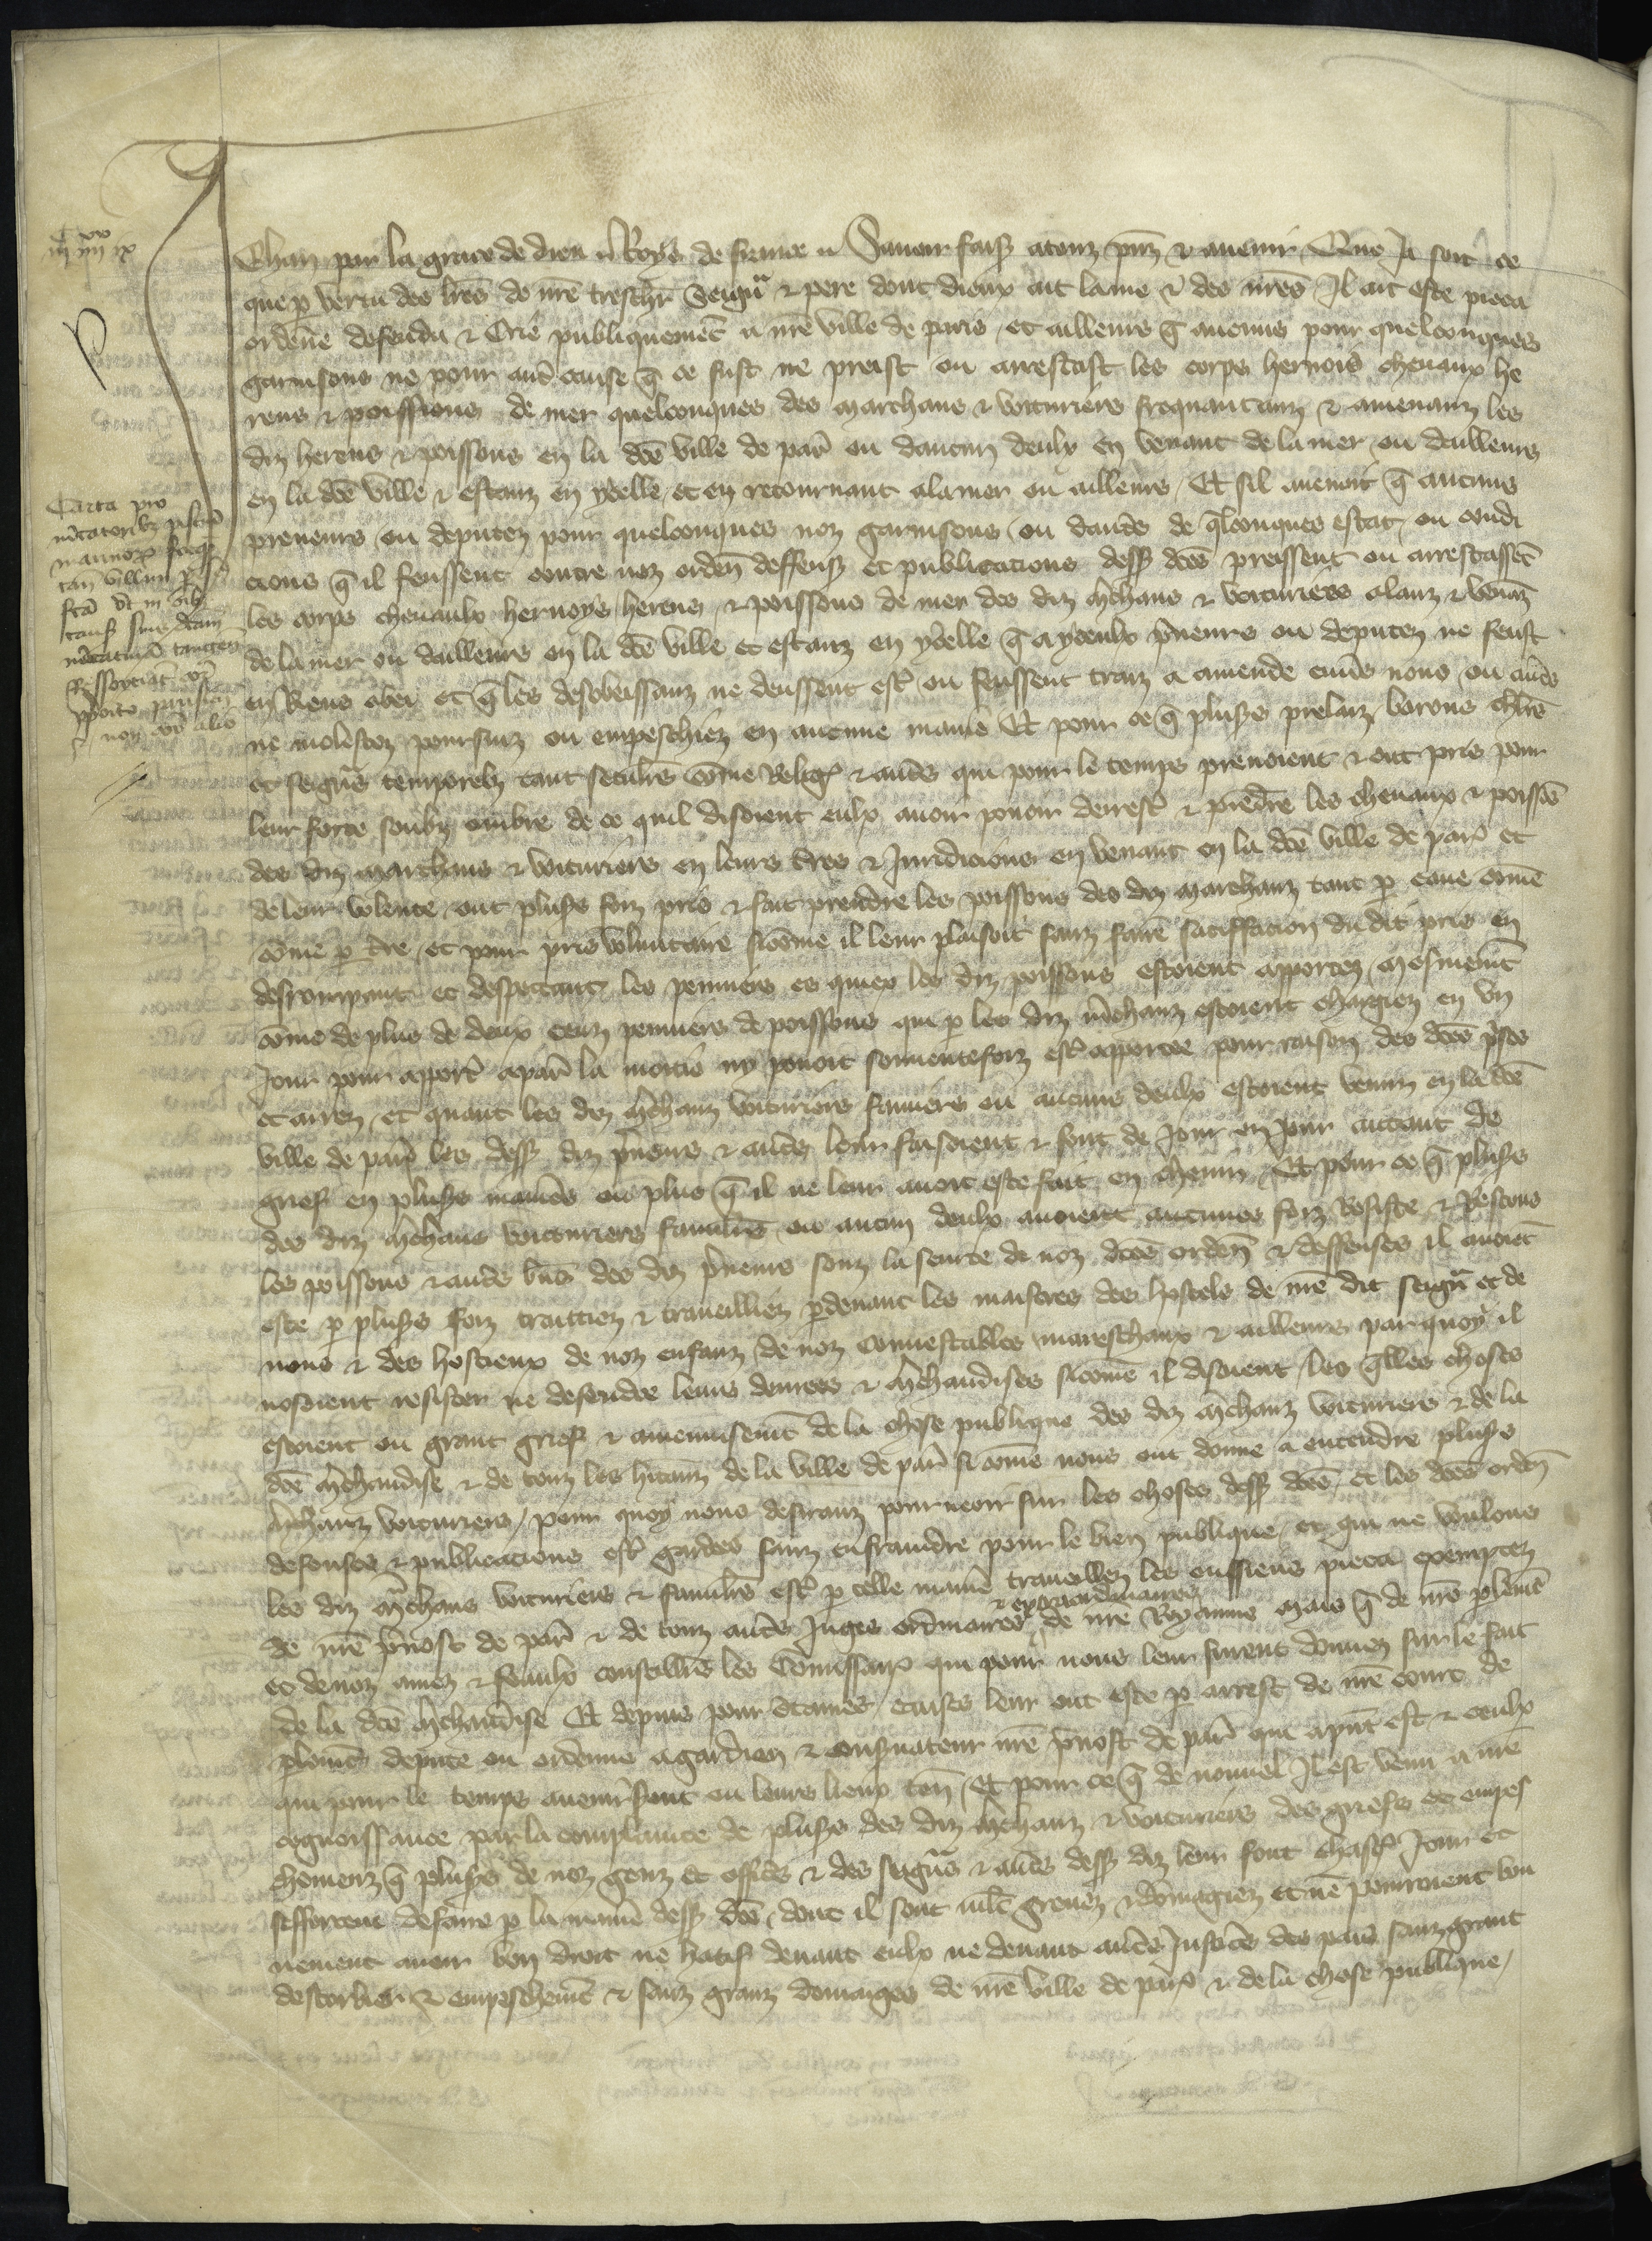 iijc iiijxx ix
Jehan par la grace de dieu Roys de france Savoir faisons a touz presenz et avenir Que Ja soit ce
que par vertu des lettres de nostre treschier Seigneur et pere dont dieux ait lame et des nostres Il ait este pieca
ordene defendu et Crie publiquement a nostre ville de paris et ailleurs que aucuns pour quelconques
garnisons ne pour autre cause que ce fust ne preist ou arrestast les corps hernois chevaux he
rens et poissons de mer quelconques des marchans et voituriers frequantanz et amenanz les
diz herens et poissons en la dicte ville de paris ou daucun deulx en venant de la mer ou dailleurs
en la dicte ville et estanz en ycelle et en retournant a la mer ou ailleurs Et sil avenoit que aucuns
preneurs ou deputez pour quelconques noz garnisons ou dautres de quelconques estat ou condi
cions que il feussent contre noz ordenances deffenses et publicacions dessus dictes preissent ou arrestassent
les corps chevaulx hernoys herens et poissons de mer des diz marchans et voituriers alanz et venanz
de la mer ou dailleurs en la dicte ville et estanz en ycelle que a yceulx preneurs ou deputez ne feust
en Riens obei et que les desobeissanz ne deussent estre ou feussent traiz a amende envers nous ou autres
ne molestez poursuiz ou empeschiez en aucune maniere Et pour ce que plusieurs prelaz barons
et seigneurs temporelz tant seculiers comme Religieux et autres qui pour le temps prenoient et ont pris pour
leur force soubz umbre de ce quil disoient eulx avoir povoir darrester et prendre les chevaux et poissons
des diz marchans et voituriers en leurs terres et Juridicions en venant en la dicte ville de paris et
de leur volente ont plusieurs foiz pris et fait prendre les poissons des diz marchanz tant par eaue comme
comme par terre et pour pris voluntaire si comme il leur plaisoit sanz faire satiffacion du dit pris en
desrompant et despeccant les penniers es quiex les diz poissons estoient apportez mesmement
comme de plus de deux cenz penniers de poissons qui par les diz marchanz estoient chargiez en un
Jour pour apporter a paris la moitie ny povoit souventesfoiz estre apportee pour raison des dictes prises
et arrez et quant les diz marchanz voituriers ou aucuns deulx estoient venuz en la dicte
ville de paris les dessus diz preneurs et autres leur faisoient et font de Jour en Jour autant de
grief en plusieurs manieres ou plus que il ne leur avoit este fait en chemin Et pour ce que plusieurs
des diz marchans voituriers familiers ou aucun deulx avoient aucunes foiz Resiste et Rescous
les poissons et autres biens des diz preneurs souz la seurte de noz dictes ordenances et deffenses il avoient
este par plusieurs foiz traittiez et travailliez pardevant les maistres des hostels de nostre dit seigneur et de
nous et des hostieux de noz enfanz de noz Connestables mareschaux et ailleurs par quoy il
nosoient resister ne defendre leurs denrees et marchandises si comme il disoient les quelles choses
estoient ou grant grief et amenuisement de la chose publique des diz marchanz voituriers et de la
dicte marchandise et de touz les habitanz de la ville de paris si comme nous ont donne a entendre plusieurs
marchanz voituriers pour quoy nous desiranz pourveoir sur les choses dessus dictes et les dictes ordenances
defenses et publicacions estre gardees sanz enfraindre pour le bien publique et qui ne voulons
les diz marchans voituriers et familiers estre par telle maniere travaillez les eussiens pieca exemptez
de nostre prevost de paris et de touz autres Juges ordinaires et extraordinaires de nostre Royaume mais que de nostre parlement
et de noz amez et feaulx conseilliers les Commissaires qui pour nous leur furent donnez sur le fait
de la dicte marchandise Et depuis pour certaines causes leur ont este par arrest de nostre court de
parlement depute ou ordenne a gardien et conservateur nostre prevost de paris qui a present est et ceulx
qui pour le temps avenir seront ou leurs lieux tenanz Et pour ce que de nouvel Il est venu a nostre
cognoissance par la complainte de plusieurs des diz marchanz et voituriers des griefs et empes
chemenz que plusieurs de noz genz et officiers et des seigneurs et autres dessus diz leur font chascun Jour et
sefforcent de faire par la maniere dessus dicte dont il sont moult grevez et domagiez et ne pourroient bon
nement avoir bon droit ne hatif devant eulx ne devant autres Justices des pais sanz grant
destorbier et empeschement et sanz granz domages de nostre ville de paris et de la chose publique
Carta pro
mercatoribus piscium
marinorum